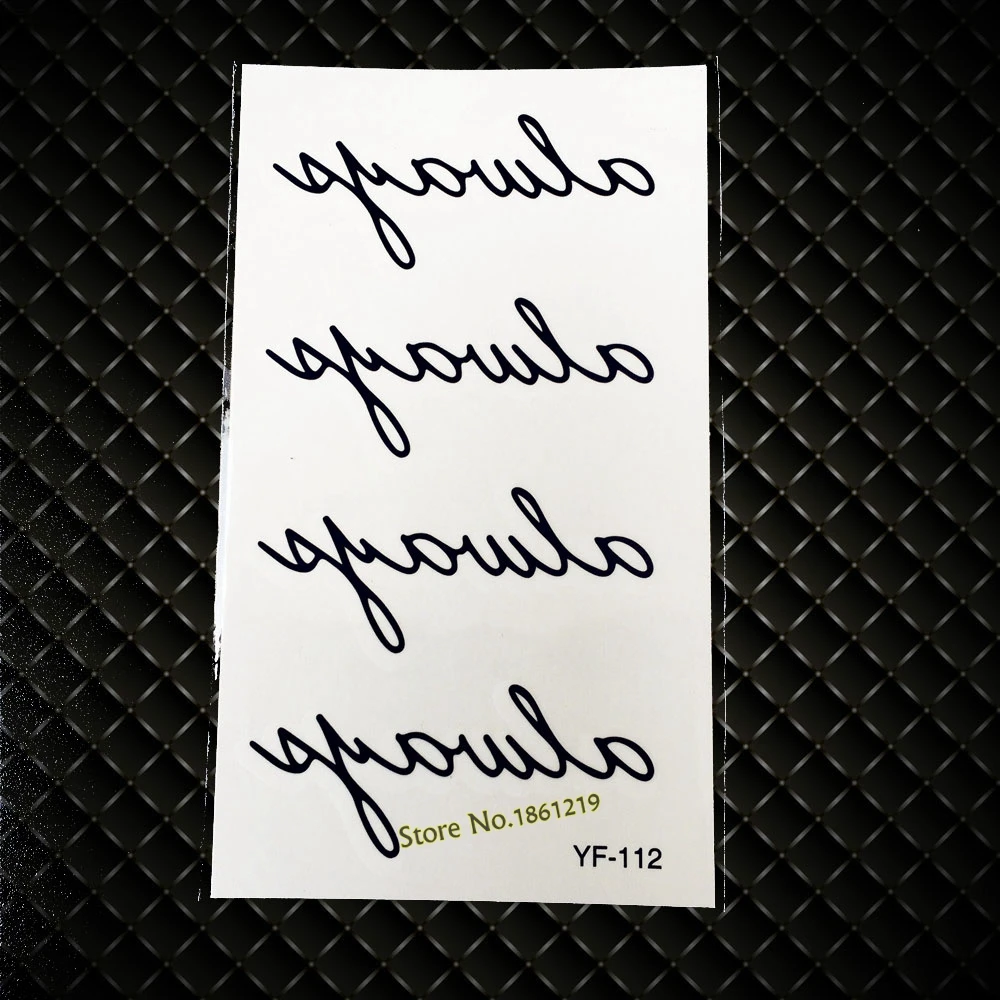 always
always
always
always
Store No.1861219
YF-112